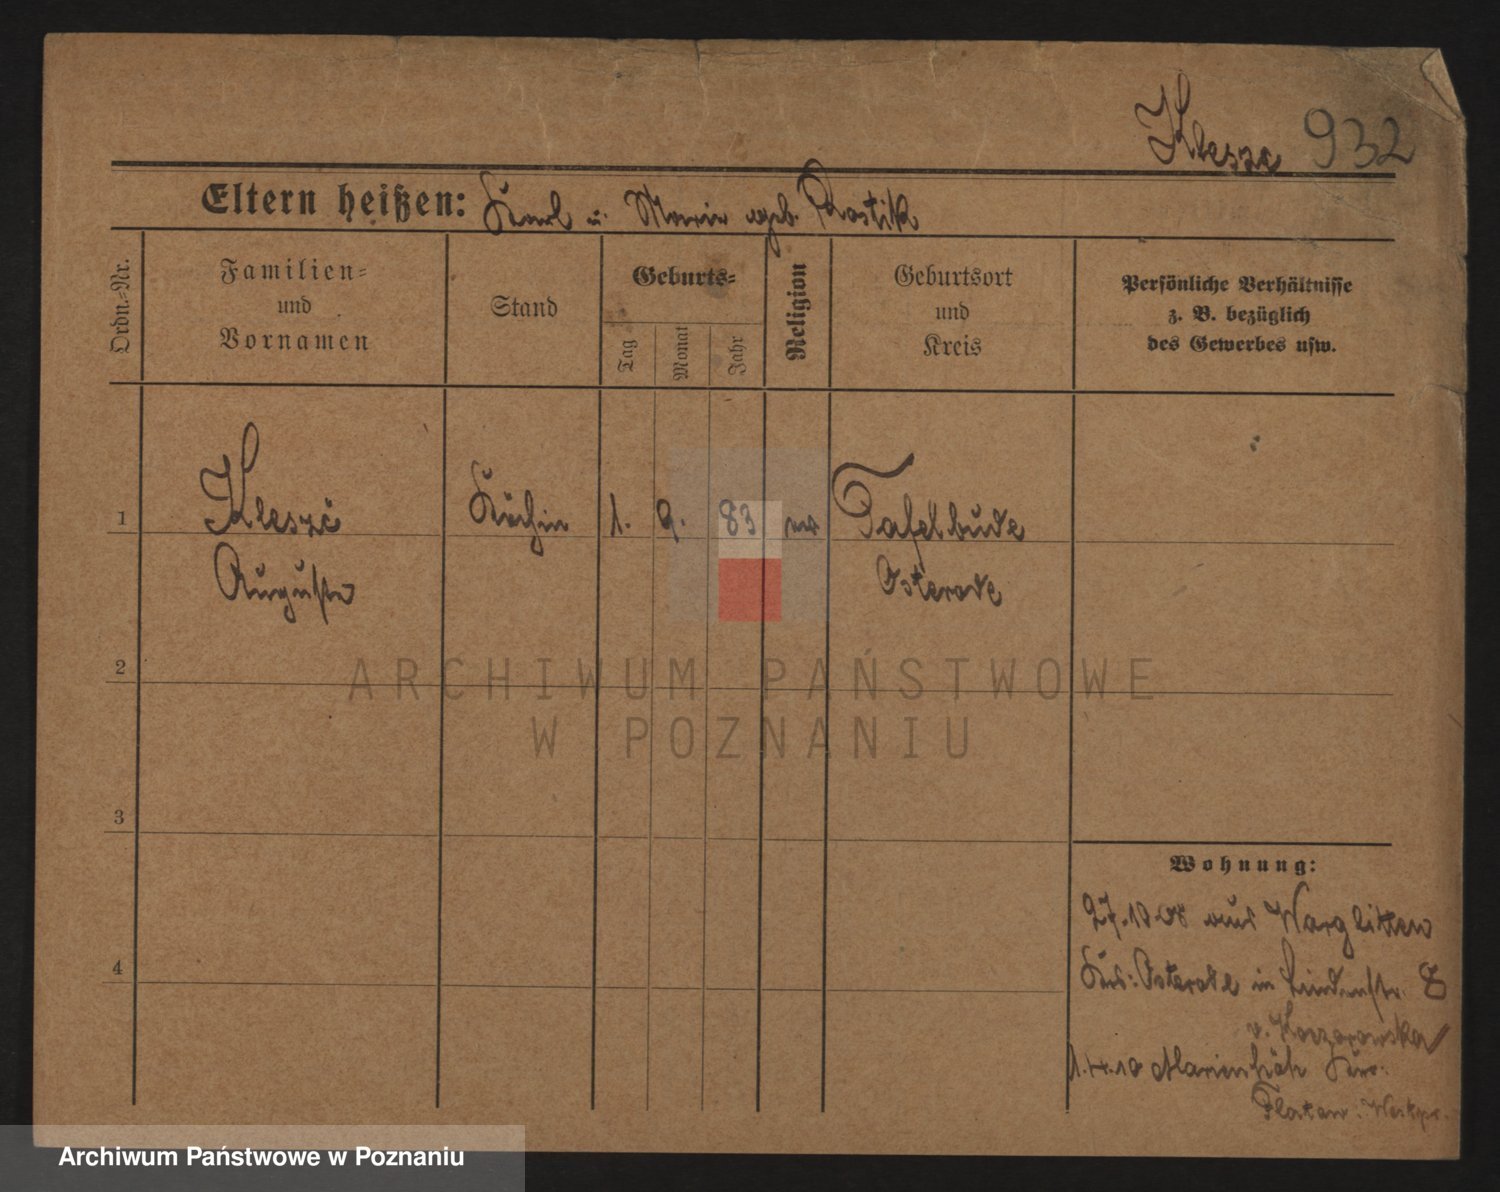 Kleszc 932
Eltern heißen: Karl u. Marie geb. Rostik
Ordn.-Nr.
Familien-
und
Vornamen
Stand
Geburts-
Tag
Monat
Jahr
Religion
Geburtsort
und
Kreis
Persönliche Verhältnisse
z. B. bezüglich
des Gewerbes usw.
1 Kleszc Köchin 1. 9. 83 Tafelbude
Auguste Osterode
2
3
4
ARCHIWUM PAŃSTWOWE
W POZNANIU
Wohnung:
27.10 08 aus Warglitten
Krs: Osterode in Lindenstr. 8
v. Koczorowska
1.4.10 Marienhöh Krs.
Flatau. Westpr.
Archiwum Państwowe w Poznaniu